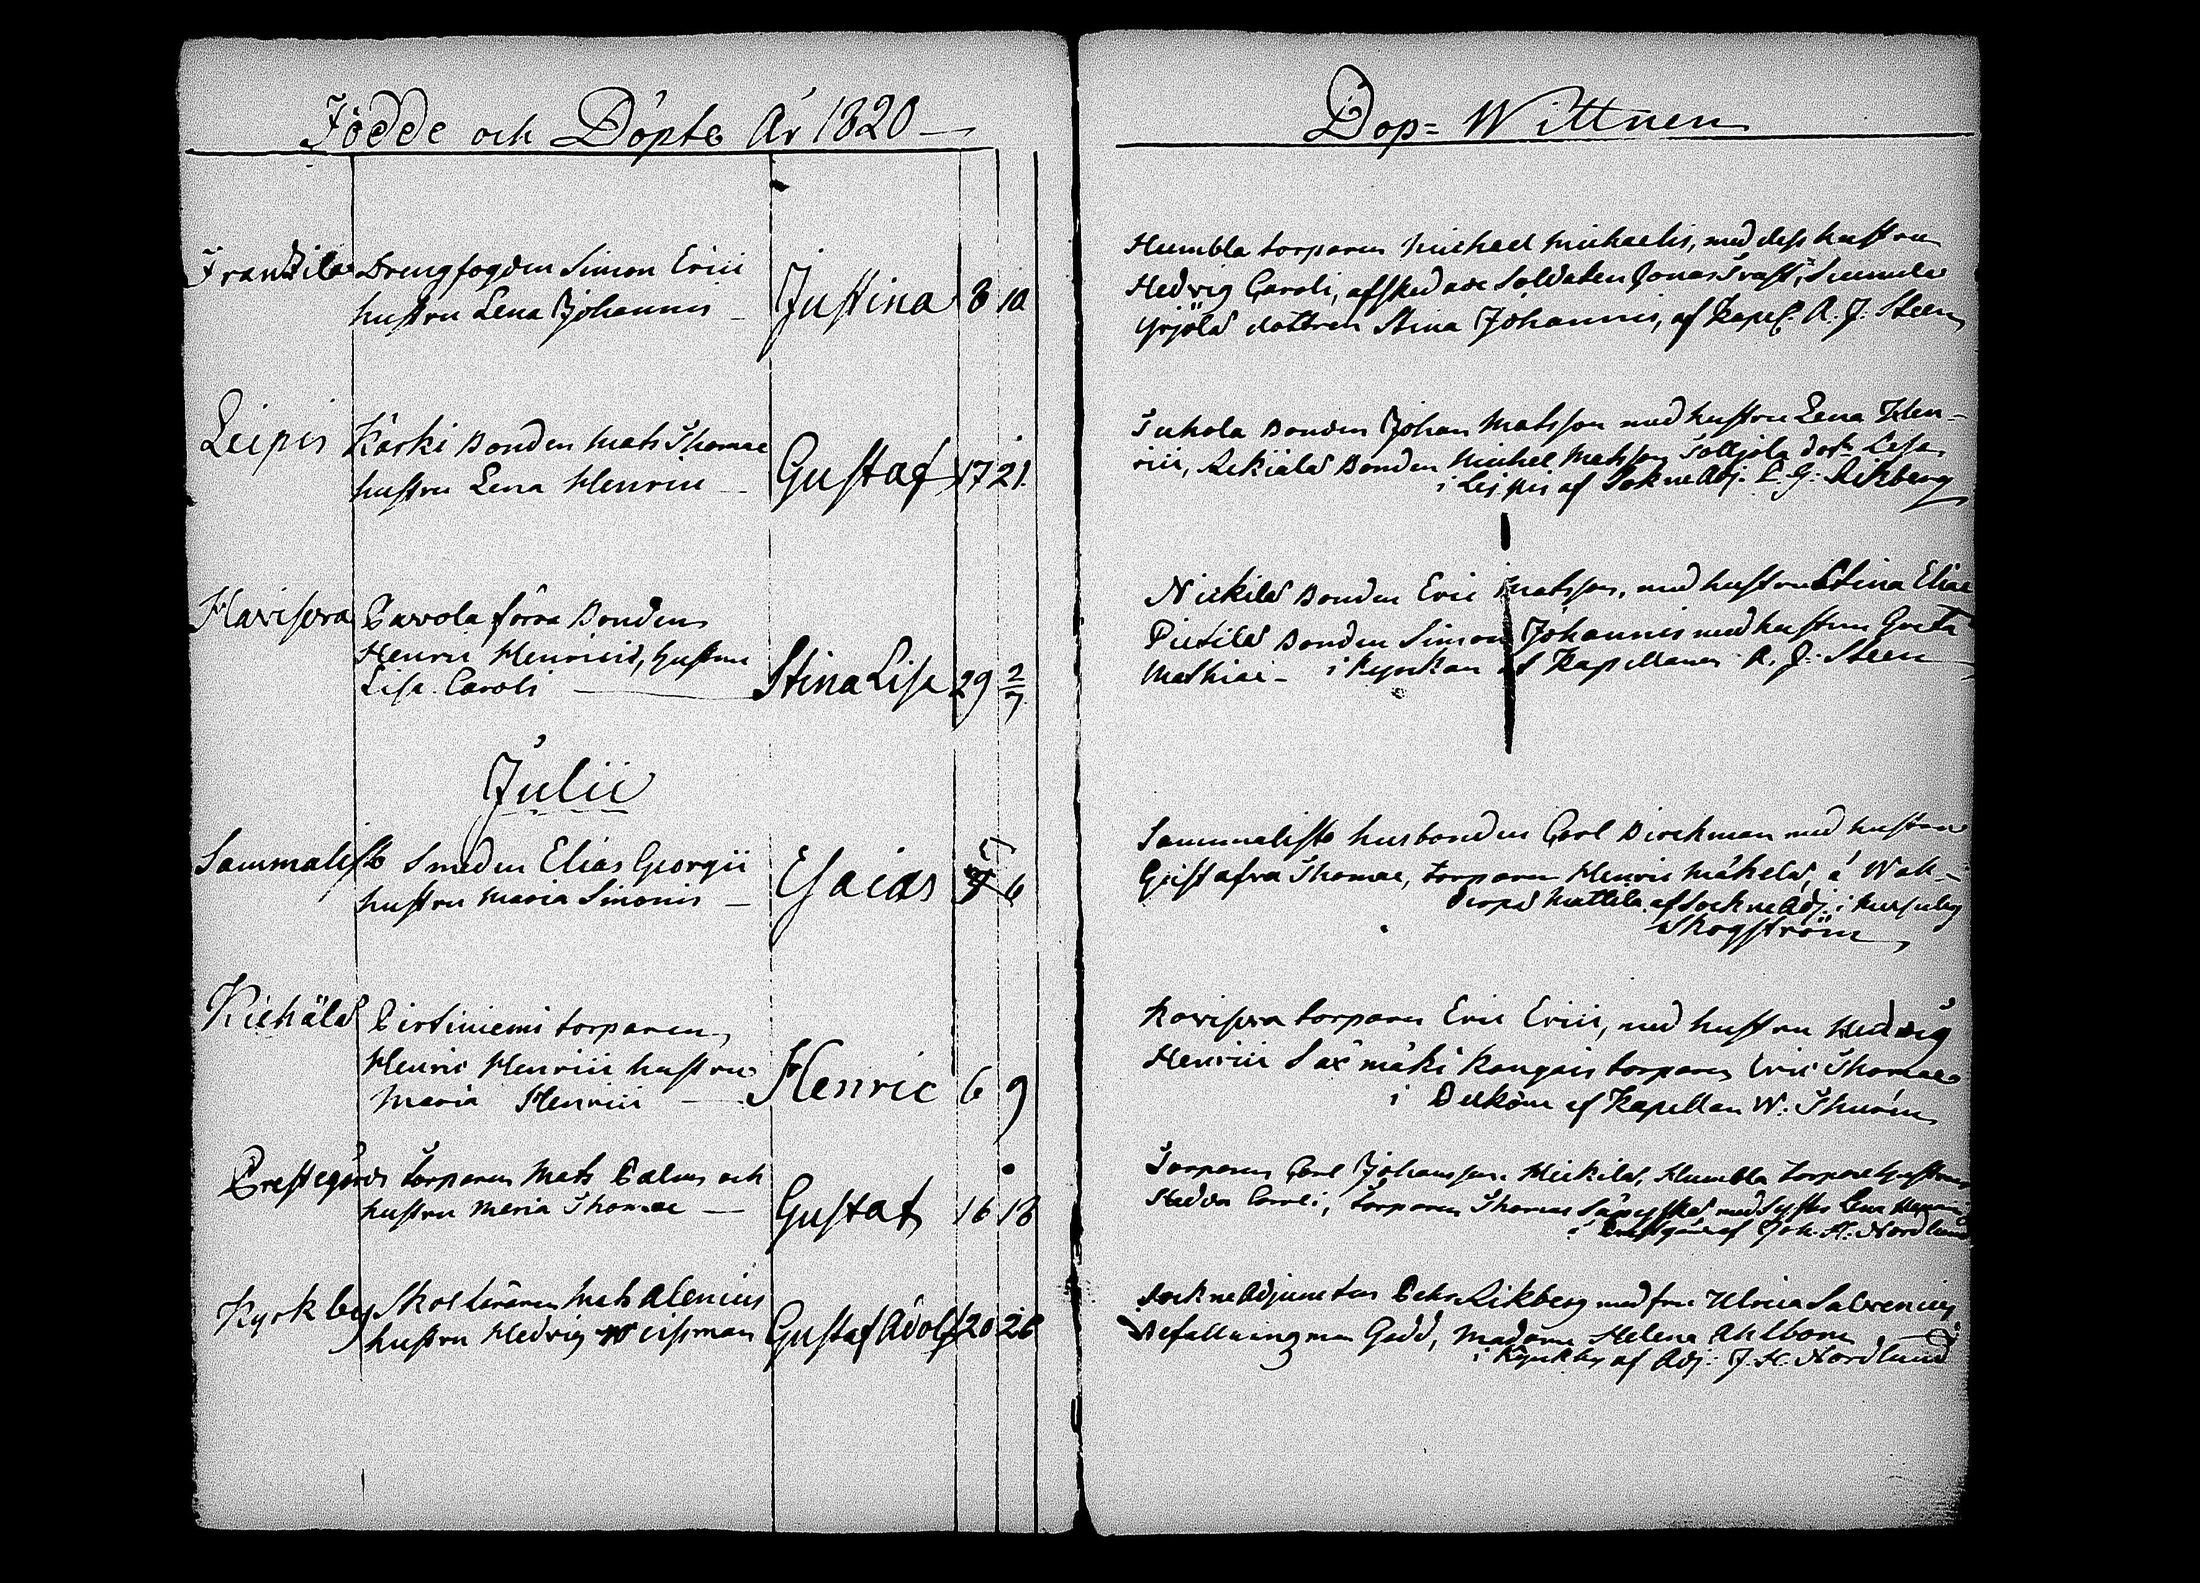 Födde och Döpte År 1820
Frantila Drengfogden Simon Erici
hustru Lena Johannis Justina 8 10
Leipis Karki Bonden Mats Thomae
hustru Lena Henrici Gustaf 17 21.
Pavola förra Bonden
Henric Henricis, hustru
Lisa Caroli Stina Lisa 29 2/7
Julii
Sammaliste Smeden Elias Georgii
hustru Maria Simonis Esaias 6
Kiehälä Pirtiniemi torparen
Henric Henrici hustru
Maria Henrici Henric 6 9
Prestegårds Torparen Mats Palm och
hustru Maria Thomae Gustaf 16 18
Kyrkby Skolläraren Mats Alenius
hustru Hedvig Weisman Gustaf Adolf 20 26
Dop=Wittnen
Humbla torparen Michael Michaelis, med dess hustru
Hedvig Caroli, afskedade Soldaten Jonas
Yrjölä dottren Stina Johannis, af Kapel. A. J. Steen
Juhola Bonden Johan Matsson med hustru Lena Hen-
rici, Bonden Michel Matsson dott. Lisa
i Leipis af SokneAdj. Rikberg
Nickilä Bonden Eric Matsson, med hustru Stina Eliae
Pietilä Bonden Simon Johannis med hustru Greta
Mathiae - i Kyrkan af Kapellanen A. J. Steen
Sammaliste husbonden Carl Birckman med hustru
Gustafva Thomae, torparen Henric Mäkelä, å
Mattila af SockneAdj. i
Skogström
Torparen Eric Erici, med hustru Hedvig
Henrici Saxmäki torparen Eric Thomae
i af Kapellan W. Thurén
Torparen Carl Johansson Mickilä, Humbla torpare hustrun
Hedda Caroli, torparen Thomas med Lena
i af Joh. H. Nordlund
SockneAdjuncten Pehr Rikberg med fru Ulrica Salvenius
Befallningman Gadd, Madame Helena Ahlbom
i Kyrkby af Adj. J. H. Nordlund